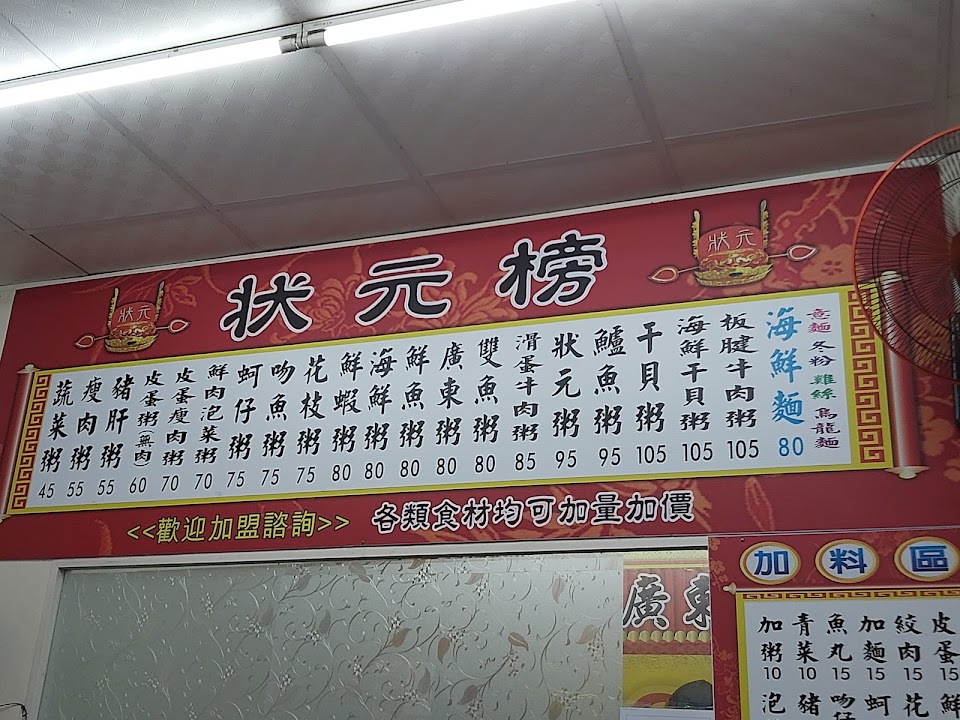 狀元榜
狀元
狀元
蔬菜粥 45
瘦肉粥 55
豬肝粥 55
皮蛋粥(無肉) 60
皮蛋瘦肉粥 70
鮮肉泡菜粥 70
蚵仔粥 75
吻魚粥 75
花枝粥 75
鮮蝦粥 80
海鮮粥 80
鮮魚粥 80
廣東粥 80
雙魚粥 80
滑蛋牛肉粥 85
狀元粥 95
鱸魚粥 95
干貝粥 105
海鮮干貝粥 105
板腱牛肉粥 105
海鮮麵 80
意麵 冬粉 雞絲 烏龍麵
<<歡迎加盟諮詢>> 各類食材均可加量加價
廣東
加料區
加粥 10
青菜 10
魚丸 15
加麵 15
絞肉 15
皮蛋 15
泡
豬
吻仔
蚵
花
鮮